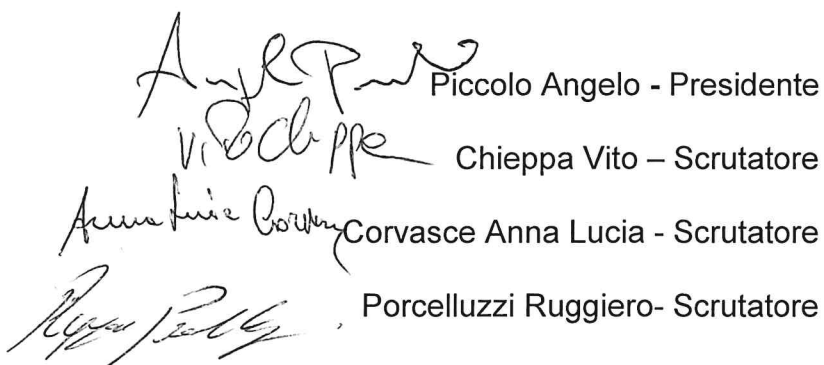 Piccolo Angelo - Presidente
Vito Chieppa Chieppa Vito – Scrutatore
Anna Lucia Corvasce Anna Lucia - Scrutatore
Porcelluzzi Ruggiero- Scrutatore